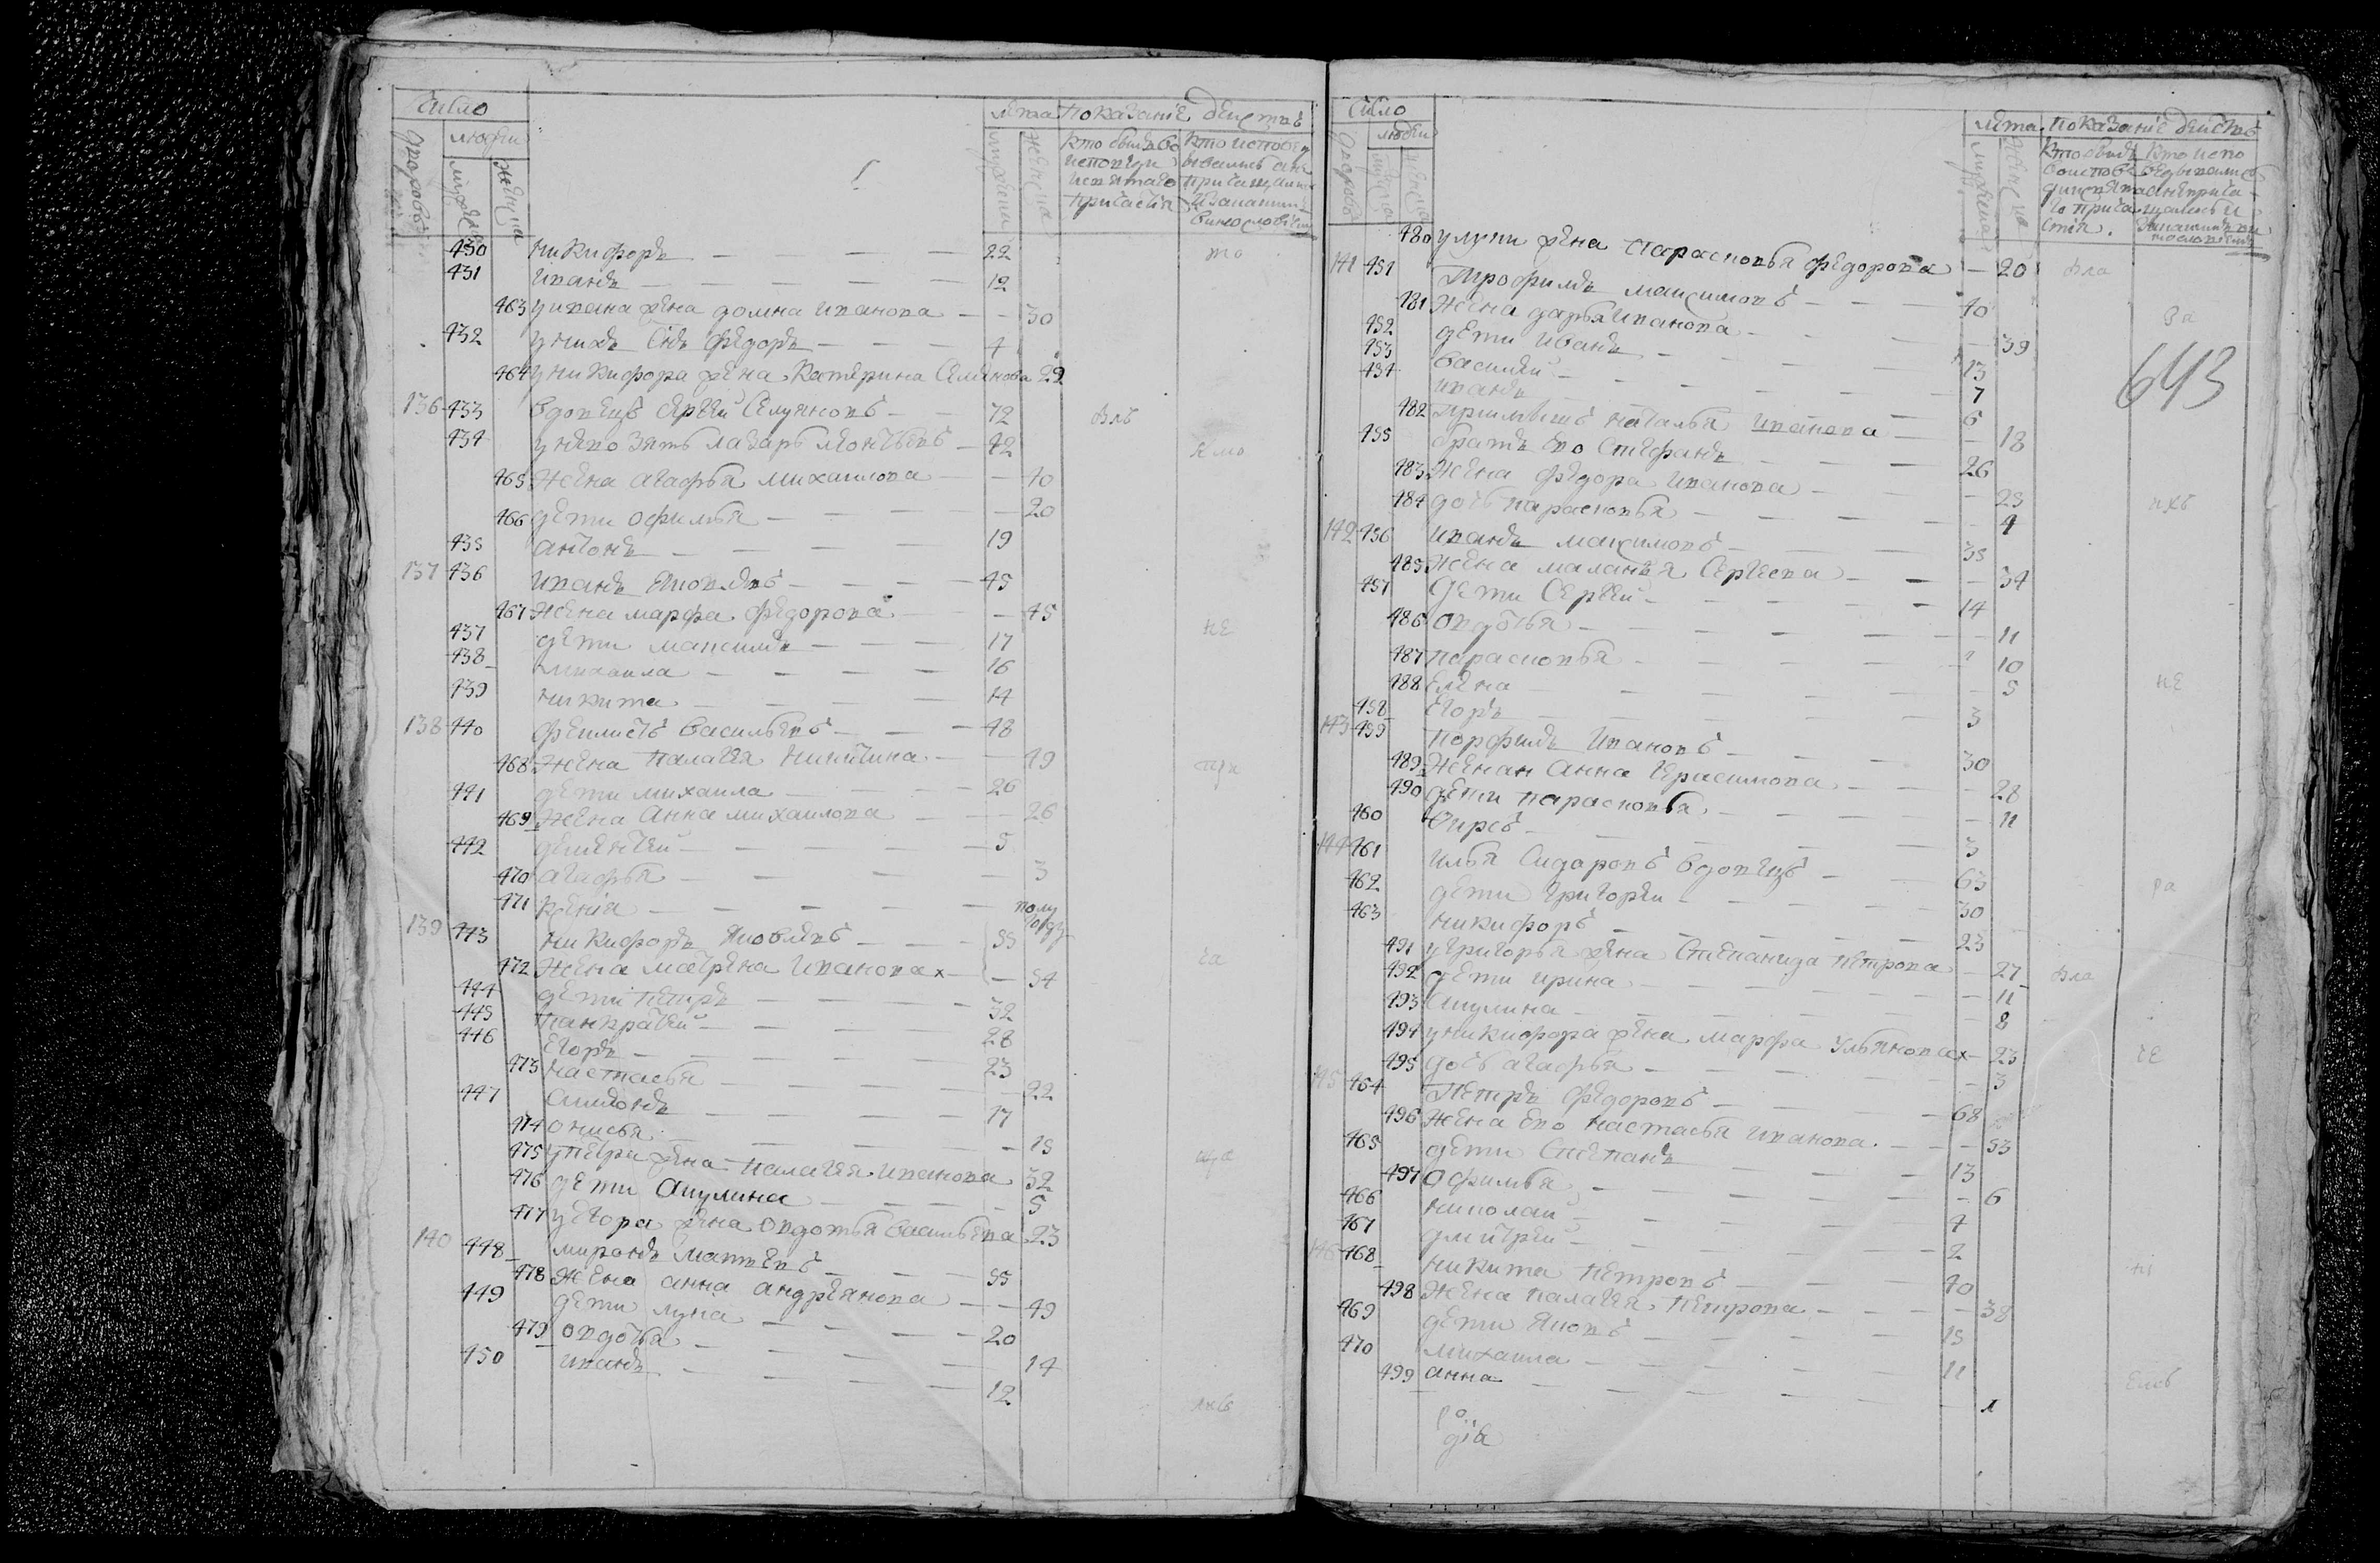 Число
людей
дворовъ
мужеска
женска
лета
мужеска
женска
показание действъ
кто былъ во исповеди и святаго причастия
кто исповедывались а не причащались и за какимъ винословиемъ
430 никифоръ — — — — 22
431 иванъ — — — — 12
463 у ивана жена домна иванова — — 30
432 у нихъ сынъ федоръ — — — 4
464 у никифора жена катерина семенова 22
136 433 вдовецъ сергей селуяновъ — — 72
434 у него зять лазарь леонтьевъ — 42
465 жена агафья михаилова — — 40
466 дети офимья — — — — 20
435 антонъ — — — — 19
137 436 иванъ яковлевъ — — — 45
467 жена марфа федорова — — 45
437 дети максимъ — — — 17
438 михаила — — — — 16
439 никита — — — — 14
138 440 васильевъ — — — 48
468 жена палагея никитина — — 49
441 дети михаила — — — 26
469 жена анна михаилова — — 26
442 дементей — — — — — 5
470 агафья — — — — 3
471 — — — — — полу году
139 443 никифоръ яковлевъ — — — 55
472 жена матрена иванова x — — 54
444 дети петръ — — — — 32
445 панкратей — — — — 28
446 егоръ — — — — 23
473 настасья — — — — 22
447 — — — — 17
474 онисья — — — — 15
475 у петра жена палагея иванова 32
476 дети акулина — — — — 5
477 у егора жена овдотья васильева 23
140 448 миронъ матвевъ — — — 55
478 жена анна андреянова — — 49
449 дети лука — — — — 20
479 овдотья — — — — 14
450 иванъ — — — — 12
Число
людей
дворовъ
мужеска
женска
лета
мужеска
женска
показание действъ
643
480 у луки жена парасковья федорова — 20
141 451 трофимъ максимовъ — — — 40
481 жена дарья иванова — — — 39
452 дети иванъ — — — — 13
453 василей — — — — 7
454 иванъ — — — — 6
482 наталья иванова — — 18
455 братъ его стефанъ — — — 26
483 жена федора иванова — — 23
484 дочь парасковья — — — — 4
142 456 иванъ максимовъ — — — 35
485 жена маланья сергеева — — 34
457 дети сергей — — — — 14
486 овдотья — — — — 11
487 парасковья — — — — 10
488 елена — — — — 5
458 егоръ — — — — 3
143 459 парфимъ ивановъ — — — 30
489 жена анна герасимова — — — 28
490 дети парасковья — — — 11
460 — — — — 3
144 461 илья сидаровъ вдовецъ — — 63
462 дети григорей — — — 30
463 никифоръ — — — — 23
491 у григорья жена степанида петрова — 27
492 дети ирина — — — — 11
493 акулина — — — — 8
494 у никифора жена марфа ульянова x — 23
495 дочь агафья — — — — 3
145 464 петръ федоровъ — — — 68
496 жена его настасья иванова — — 53
465 дети степанъ — — — 13
497 офимья — — — — 6
466 николай — — — — 4
467 дмитрей — — — — 2
146 468 никита петровъ — — — 40
498 жена палагея петрова — — — 38
469 дети яковъ — — — — 15
470 михаила — — — — 11
499 анна — — — — 1